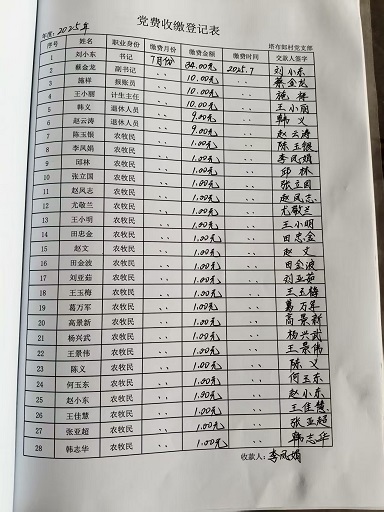 党费收缴登记表
年度: 2025年 塔布部村党支部
序号 姓名 职业身份 缴费月份 缴费金额 缴费时间 交款人签字
1 刘小东 书记 7月份 34.00元 2025.7 刘小东
2 蔡金龙 副书记 〃 10.00元 〃 蔡金龙
3 施样 报账员 〃 10.00元 〃 施样
4 王小丽 计生主任 〃 10.00元 〃 王小丽
5 韩义 退休人员 〃 9.00元 〃 韩义
6 赵云涛 退休人员 〃 9.00元 〃 赵云涛
7 陈玉银 农牧民 〃 1.00元 〃 陈玉银
8 李凤娟 农牧民 〃 1.00元 〃 李凤娟
9 邱林 农牧民 〃 1.00元 〃 邱林
10 张立国 农牧民 〃 1.00元 〃 张立国
11 赵凤志 农牧民 〃 1.00元 〃 赵凤志
12 尤敬兰 农牧民 〃 1.00元 〃 尤敬兰
13 王小明 农牧民 〃 1.00元 〃 王小明
14 田忠金 农牧民 〃 1.00元 〃 田忠金
15 赵文 农牧民 〃 1.00元 〃 赵文
16 田金波 农牧民 〃 1.00元 〃 田金波
17 刘亚茹 农牧民 〃 1.00元 〃 刘亚茹
18 王玉梅 农牧民 〃 1.00元 〃 王玉梅
19 葛万军 农牧民 〃 1.00元 〃 葛万军
20 高景新 农牧民 〃 1.00元 〃 高景新
21 杨兴武 农牧民 〃 1.00元 〃 杨兴武
22 王景伟 农牧民 〃 1.00元 〃 王景伟
23 陈义 农牧民 〃 1.00元 〃 陈义
24 何玉东 农牧民 〃 1.00元 〃 何玉东
25 赵小东 农牧民 〃 1.00元 〃 赵小东
26 王佳慧 农牧民 〃 1.00元 〃 王佳慧
27 张亚超 农牧民 〃 1.00元 〃 张亚超
28 韩志华 农牧民 〃 1.00元 〃 韩志华
收款人: 李凤娟